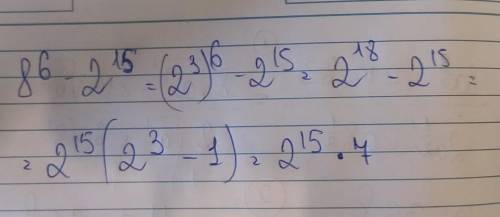 8⁶ - 2¹⁵ = (2³)⁶ - 2¹⁵ = 2¹⁸ - 2¹⁵ =
= 2¹⁵(2³ - 1) = 2¹⁵ · 7